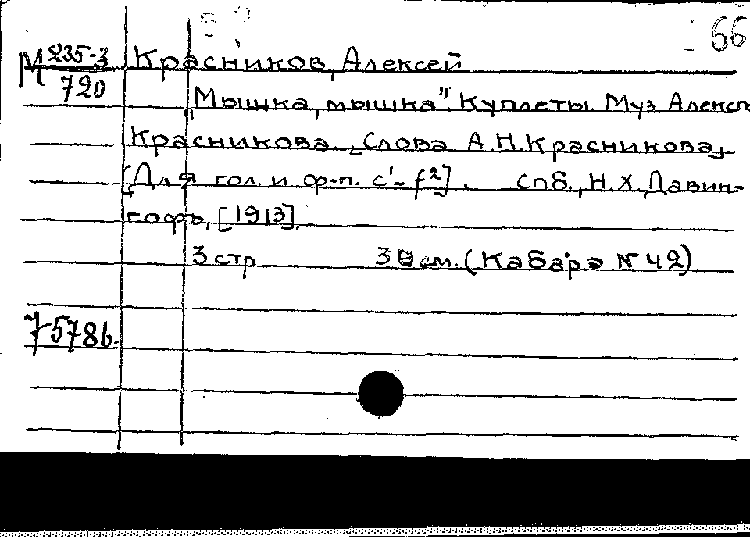 66
М 235-3 Красников, Алексей
720 "Мышка, мышка". Куплеты. Муз. Алекс
Красникова. Слова А.Н.Красникова.
[Для гол. и ф-п. с¹-f²]. Спб., Н.Х. Давин-
гофъ, [1913].
3 стр 30 см. (Кабарэ № 42)
75786.